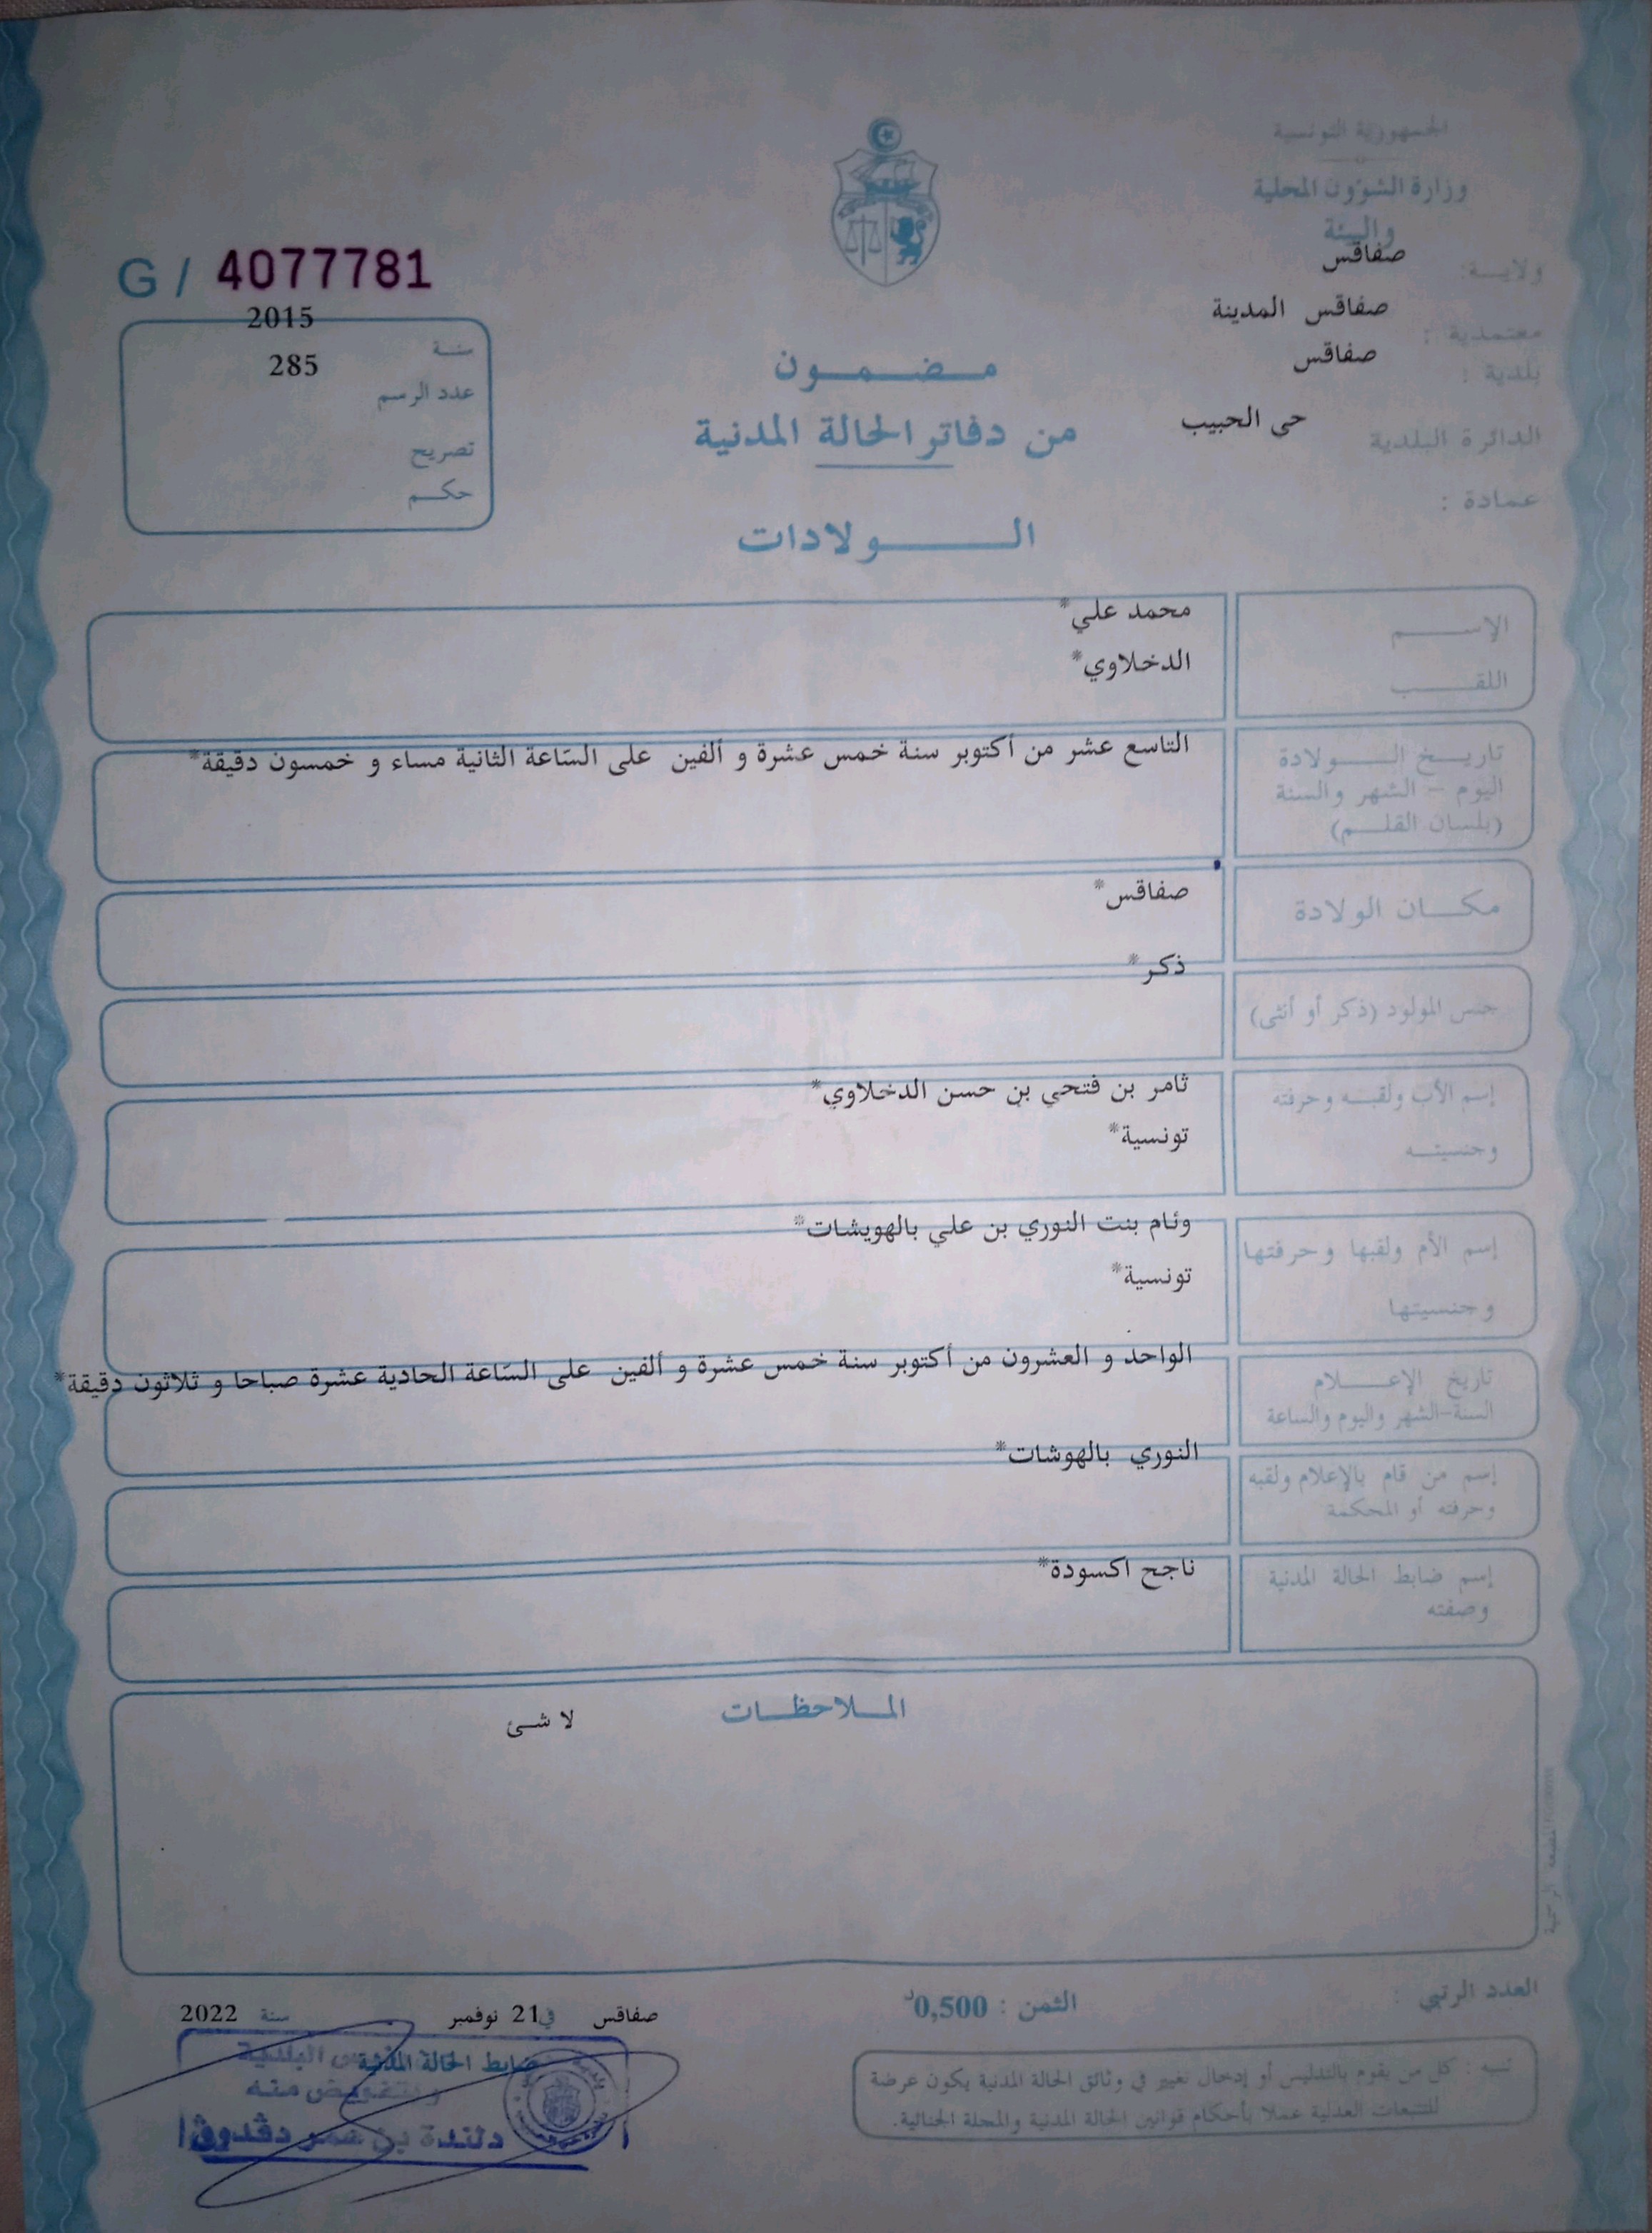 الجمهورية التونسية
وزارة الشؤون المحلية
والبيئة
ولايـــة: صفاقس
معتمدية : صفاقس المدينة
بلدية : صفاقس
الدائرة البلدية حى الحبيب
عمادة :
G / 4077781
سنــة 2015
عدد الرسم 285
تصريح
حكــم
مـضـمـون
من دفاتر الحالة المدنية
الــولادات
الإســـم محمد علي*
اللقـــب الدخلاوي*
تاريــخ الـــولادة التاسع عشر من أكتوبر سنة خمس عشرة و ألفين على السّاعة الثانية مساء و خمسون دقيقة*
اليوم – الشهر والسنة
(بلسان القلــم)
مكــان الولادة صفاقس*
جنس المولود (ذكر أو أنثى) ذكر*
إسم الأب ولقبــه وحرفته ثامر بن فتحي بن حسن الدخلاوي*
وجنسيتــه تونسية*
إسم الأم ولقبها وحرفتها وئام بنت النوري بن علي بالهويشات*
وجنسيتها تونسية*
تاريخ الإعـــلام الواحد و العشرون من أكتوبر سنة خمس عشرة و ألفين على السّاعة الحادية عشرة صباحا و ثلاثون دقيقة*
السنة-الشهر واليوم والساعة
إسم من قام بالإعلام ولقبه النوري بالهوشات*
وحرفته أو المحكمة
إسم ضابط الحالة المدنية ناجح اكسودة*
وصفته
المــلاحظــات
لا شئ
العدد الرتبي :
الثمن : 0,500د
صفاقس في 21 نوفمبر سنة 2022
ضابط الحالة المدنية
البلدية
وبتفويض منه
دلندة بن عمر دقدوق
تنبيه : كل من يقوم بالتدليس أو إدخال تغيير في وثائق الحالة المدنية يكون عرضة
للتتبعات العدلية عملا بأحكام قوانين الحالة المدنية والمجلة الجنائية.